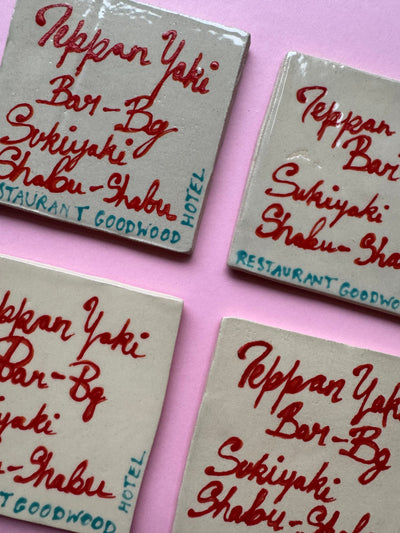 Teppan Yaki
Bar-Bg
Sukiyaki
Shabu-Shabu
STAURANT GOODWOOD
HOTEL
Teppan
Bar
Sukiyaki
Shabu-Sha
RESTAURANT GOODWO
eppan Yaki
Bar-Bg
iyaki
u-Shabu
T GOODWOOD
HOTEL
Teppan Yak
Bar-Bg
Sukiyaki
Shabu-Shabu